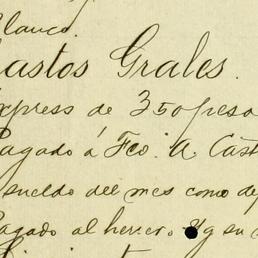 Blanco.
Gastos Grales.
Express de 350 pesos
Pagado á Fco. A. Cast
sueldo del mes como de
Pagado al herrero. y su